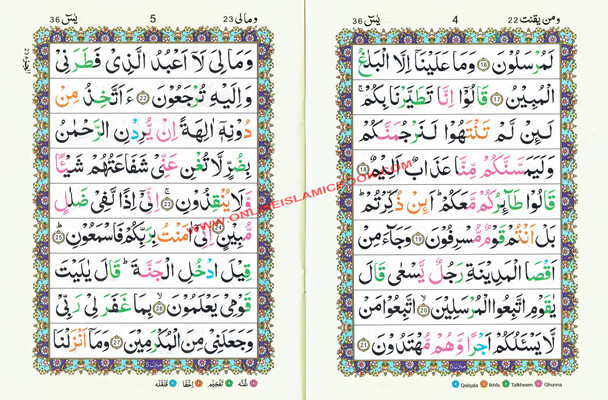 ومن يقنت 22 4 يٰسٓ 36
لَمُرْسَلُوْنَ ۝16 وَمَا عَلَيْنَاۤ اِلَّا الْبَلٰغُ
الْمُبِيْنُ ۝17 قَالُوْۤا اِنَّا تَطَيَّرْنَا بِكُمْ ۚ
لَئِنْ لَّمْ تَنْتَهُوْا لَنَرْجُمَنَّكُمْ
وَلَيَمَسَّنَّكُمْ مِّنَّا عَذَابٌ اَلِيْمٌ ۝18
قَالُوْا طَآئِرُكُمْ مَّعَكُمْ ؕ اَئِنْ ذُكِّرْتُمْ ؕ
بَلْ اَنْتُمْ قَوْمٌ مُّسْرِفُوْنَ ۝19 وَجَآءَ مِنْ
اَقْصَا الْمَدِيْنَةِ رَجُلٌ يَّسْعٰى قَالَ
يٰقَوْمِ اتَّبِعُوا الْمُرْسَلِيْنَ ۝20 اتَّبِعُوْا مَنْ
لَّا يَسْئَلُكُمْ اَجْرًا وَّهُمْ مُّهْتَدُوْنَ ۝21
Qalqala Ikhfa Tafkheem Ghunna
ومالی 23 5 يٰسٓ 36
وَمَا لِىَ لَاۤ اَعْبُدُ الَّذِىْ فَطَرَنِىْ
وَاِلَيْهِ تُرْجَعُوْنَ ۝22 ءَاَتَّخِذُ مِنْ
دُوْنِهٖۤ اٰلِهَةً اِنْ يُّرِدْنِ الرَّحْمٰنُ
بِضُرٍّ لَّا تُغْنِ عَنِّىْ شَفَاعَتُهُمْ شَيْئًا
وَّلَا يُنْقِذُوْنِ ۝23 اِنِّىْۤ اِذًا لَّفِىْ ضَلٰلٍ
مُّبِيْنٍ ۝24 اِنِّىْۤ اٰمَنْتُ بِرَبِّكُمْ فَاسْمَعُوْنِ ۝25
قِيْلَ ادْخُلِ الْجَنَّةَ ؕ قَالَ يٰلَيْتَ
قَوْمِىْ يَعْلَمُوْنَ ۝26 بِمَا غَفَرَ لِىْ رَبِّىْ
وَجَعَلَنِىْ مِنَ الْمُكْرَمِيْنَ ۝27 وَمَاۤ اَنْزَلْنَا
غُنَّه تَفْخِيْم اِخْفَا قَلْقَلَه
WWW.ONLINEISLAMICBOOK.COM